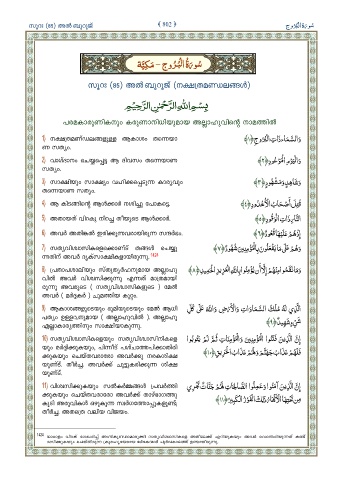 സൂറഃ (85) അൽ ബുറൂജ്
802
سُورَةُ الْبُرُوجِ
سُورَةُ الْبُرُوجِ - مَكِّيَّة
സൂറഃ (85) അൽ ബുറൂജ് (നക്ഷത്രമണ്ഡലങ്ങൾ)
بِسْمِ اللَّهِ الرَّحْمَٰنِ الرَّحِيمِ
പരമകാരുണികനും കരുണാനിധിയുമായ അല്ലാഹുവിന്റെ നാമത്തിൽ
1) നക്ഷത്രമണ്ഡലങ്ങളുള്ള ആകാശം തന്നെയാ
ണ സത്യം.
وَالسَّمَاءِ ذَاتِ الْبُرُوجِ ﴿١﴾
2) വാഗ്ദാനം ചെയ്യപ്പെട്ട ആ ദിവസം തന്നെയാണ
സത്യം.
وَالْيَوْمِ الْمَوْعُودِ ﴿٢﴾
3) സാക്ഷിയും സാക്ഷ്യം വഹിക്കപ്പെടുന്ന കാര്യവും
തന്നെയാണ സത്യം.
وَشَاهِدٍ وَمَشْهُودٍ ﴿٣﴾
4) ആ കിടങ്ങിന്റെ ആൾക്കാർ നശിച്ചു പോകട്ടെ.
قُتِلَ أَصْحَابُ الْأُخْدُودِ ﴿٤﴾
5) അതായത് വിറകു നിറച്ച തീയുടെ ആൾക്കാർ.
النَّارِ ذَاتِ الْوَقُودِ ﴿٥﴾
6) അവർ അതിങ്കൽ ഇരിക്കുന്നവരായിരുന്ന സന്ദർഭം.
إِذْ هُمْ عَلَيْهَا قُعُودٌ ﴿٦﴾
7) സത്യവിശ്വാസികളെക്കൊണ്ട് തങ്ങൾ ചെയ്യു
ന്നതിന് അവർ ദൃക്‌സാക്ഷികളായിരുന്നു.
وَهُمْ عَلَىٰ مَا يَفْعَلُونَ بِالْمُؤْمِنِينَ شُهُودٌ ﴿٧﴾
8) പ്രതാപശാലിയും സ്തുത്യർഹനുമായ അല്ലാഹു
വിൽ അവർ വിശ്വസിക്കുന്നു എന്നത് മാത്രമായി
രുന്നു അവരുടെ ( സത്യവിശ്വാസികളുടെ ) മേൽ
അവർ ( മർദ്ദകർ ) ചുമത്തിയ കുറ്റം.
وَمَا نَقَمُوا مِنْهُمْ إِلَّا أَنْ يُؤْمِنُوا بِاللَّهِ الْعَزِيزِ الْحَمِيدِ ﴿٨﴾
9) ആകാശങ്ങളുടെയും ഭൂമിയുടെയും മേൽ ആധി
പത്യം ഉള്ളവനുമായ ( അല്ലാഹുവിൽ ). അല്ലാഹു
എല്ലാകാര്യത്തിനും സാക്ഷിയാകുന്നു.
الَّذِي لَهُ مُلْكُ السَّمَاوَاتِ وَالْأَرْضِ وَاللَّهُ عَلَىٰ كُلِّ
شَيْءٍ شَهِيدٌ ﴿٩﴾
10) സത്യവിശ്വാസികളെയും സത്യവിശ്വാസിനികളെ
യും മർദ്ദിക്കുകയും, പിന്നീട് പശ്ചാത്തപിക്കാതിരി
ക്കുകയും ചെയ്തവരാരോ അവർക്കു നരകശിക്ഷ
യുണ്ട്. തീർച്ച. അവർക്ക് ചുട്ടുകരിക്കുന്ന ശിക്ഷ
യുണ്ട്.
إِنَّ الَّذِينَ فَتَنُوا الْمُؤْمِنِينَ وَالْمُؤْمِنَاتِ ثُمَّ لَمْ يَتُوبُوا
فَلَهُمْ عَذَابُ جَهَنَّمَ وَلَهُمْ عَذَابُ الْحَرِيقِ ﴿١٠﴾
11) വിശ്വസിക്കുകയും സൽകർമ്മങ്ങൾ പ്രവർത്തി
ക്കുകയും ചെയ്തവരാരോ അവർക്ക് താഴ്ഭാഗത്തു
കൂടി അരുവികൾ ഒഴുകുന്ന സ്വർഗത്തോപ്പുകളുണ്ട്,
തീർച്ച. അതത്രെ വലിയ വിജയം.
إِنَّ الَّذِينَ آمَنُوا وَعَمِلُوا الصَّالِحَاتِ لَهُمْ جَنَّاتٌ تَجْرِي
مِنْ تَحْتِهَا الْأَنْهَارُ ذَٰلِكَ الْفَوْزُ الْكَبِيرُ ﴿١١﴾